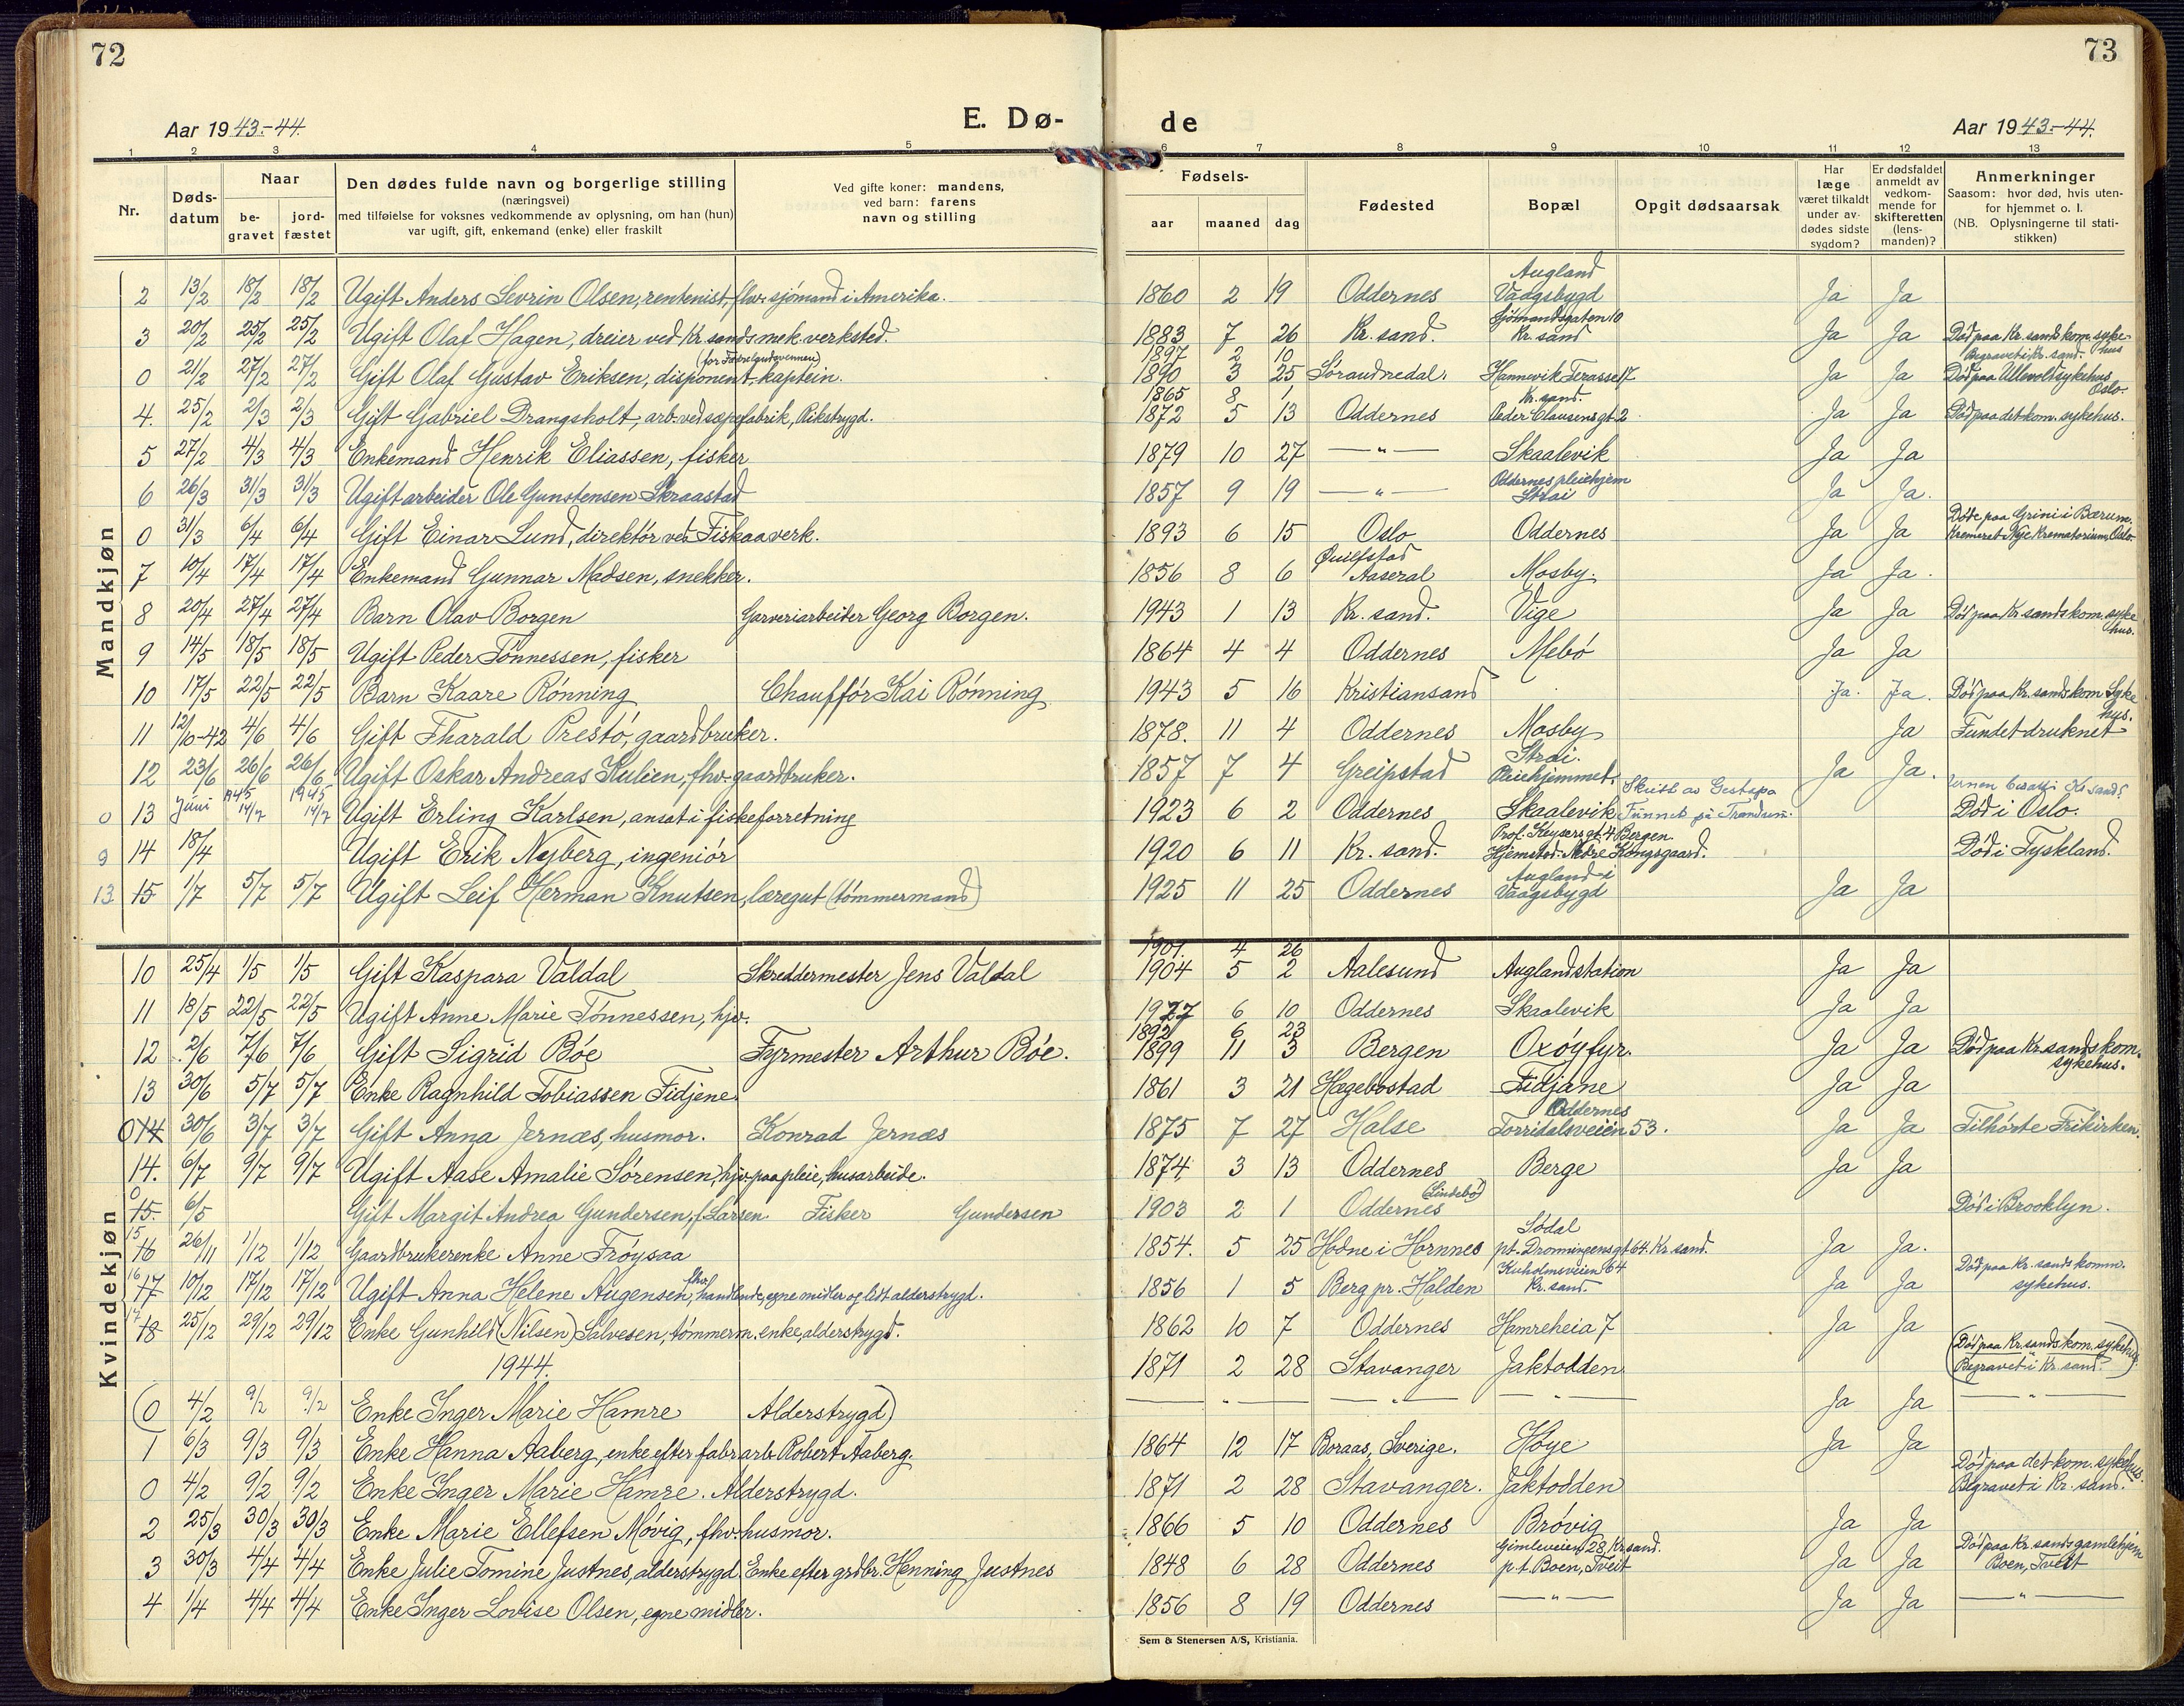 72
73
Aar 1943.-44.
E. Dø-
de
Aar 1943.-44.
1 2 3 4 5 6 7 8 9 10 11 12 13
Nr.
Døds-datum
Naar
be-gravet
jord-fæstet
Den dødes fulde navn og borgerlige stilling
(næringsvei)
med tilføielse for voksnes vedkommende av oplysning, om han (hun)
var ugift, gift, enkemand (enke) eller fraskilt
Ved gifte koner: mandens,
ved barn: farens
navn og stilling
Fødsels-
aar maaned dag
Fødested
Bopæl
Opgit dødsaarsak
Har læge været tilkaldt under av-dødes sidste sygdom?
Er dødsfaldet anmeldt av vedkom-mende for skifteretten (lens-manden)?
Anmerkninger
Saasom: hvor død, hvis uten-
for hjemmet o. l.
(NB. Oplysningerne til stati-
stikken)
Mandkjøn
2 13/2 18/2 18/2 Ugift Anders Sevrin Olsen, rentenist, fhv. sjømand i Amerika. 1860 2 19 Oddernes Augland Vaagsbygd Ja Ja
3 20/2 25/2 25/2 Ugift Olaf Hagen, dreier ved Kr.sands mek. verksted. 1883 7 26 Kr. sand. Sjømandsgaten 10 Kr. sand Ja Ja Død paa Kr.sands kom. sykehus
0 21/2 27/2 27/2 Gift Olaf Gustav Eriksen, disponent, kaptein. 1897 2 10 1890 3 25 Søraudnedal. Hannevik Terasse 17 Ja Ja Begravet i Kr. sand. Død paa Ullevolt sykehus Oslo.
4. 25/2 2/3 2/3 Gift Gabriel Drangsholt, arb. ved sæpefabrik, Rikstrygd. 1865 8 1 1872 5 13 Oddernes Kr. sand. Peder Clausens gt. 2 Ja Ja Død paa det kom. sykehus.
5 27/2 4/3 4/3 Enkemand Henrik Eliassen, fisker 1879 10 27 —"— Skaalevik Ja Ja
6 26/3 31/3 31/3 Ugift arbeider Ole Gunstensen Skraastad 1857 9 19 —"— Oddernes pleiehjem Strai Ja Ja.
0 31/3 6/4 6/4 Gift Einar Lund, direktør ved Fiskaa verk. 1893 6 15 Oslo Oddernes Ja Ja Døde paa Grini i Bærum. Kremeret Nye Krematorium, Oslo
7 10/4 17/4 17/4 Enkemand Gunnar Madsen, snekker. 1856 8 6 Aaseral Mosby. Ja Ja.
8 20/4 27/4 27/4 Barn Olav Borgen Garveriarbeider Georg Borgen. 1943 1 13 Kr. sand. Vige Ja Ja Død paa Kr.sands kom. sykehus.
9 14/5 18/5 18/5 Ugift Peder Tønnessen, fisker 1864 4 4 Oddernes Mebø Ja Ja
10 17/5 22/5 22/5 Barn Kaare Rønning Chauffør Kai Rønning 1943 5 16 Kristiansand Ja. Ja. Død paa Kr.sands kom Sykehus.
11 12/10-42 4/6 4/6 Gift Tharald Prestø, gaardbruker. 1878. 11 4 Oddernes Mosby Ja Fundet druknet
12 23/6 26/6 26/6 Ugift Oskar Andreas Kulien, fhv. gaardbruker. 1857 7 4 Greipstad Strai. Pleiehjemmet. Ja Ja.
0 13 Juni 1945 14/7 1945 14/7 Ugift Erling Karlsen, ansat i fiskeforretning 1923 6 2 Oddernes Skaalevik Skutt av Gestapo Funnet på Trandum. Død i Oslo.
0 14 18/4 Ugift Erik Nyberg, ingeniør 1920 6 11 Kr. sand. Prof. Keysers gt. 4 Bergen. Hjemsted: Nedre Kongsgaard. Død i Tyskland.
13 15 1/7 5/7 5/7 Ugift Leif Herman Knutsen, læregut (tømmermand) 1925 11 25 Oddernes Augland i Vaagsbygd Ja Ja
Kvindekjøn
10 25/4 1/5 1/5 Gift Kaspara Valdal Skreddermester Jens Valdal 1901. 4 26 1904 5 2 Aalesund Auglandstation Ja Ja
11 18/5 22/5 22/5 Ugift Anne Marie Tønnessen, hjv. 1927 6 10 Oddernes Skaalevik Ja Ja
12 2/6 7/6 7/6 Gift Sigrid Bøe Fyrmester Arthur Bøe. 1892 6 23 1899 11 3 Bergen Oxøy fyr. Ja Ja Død paa Kr.sands kom. sykehus.
13 30/6 5/7 5/7 Enke Ragnhild Tobiassen Fidjene 1861 3 21 Hægebostad Fidjane Ja Ja
0 14 30/6 3/7 3/7 Gift Anna Jernæs, husmor. Konrad Jernæs 1875 7 27 Halse Oddernes Torridalsveien 53. Ja Ja Tilhørte Frikirken.
14. 6/7 9/7 9/7 Ugift Aase Amalie Sørensen, hjv. paa pleie, husarbeide. 1874 3 13 Oddernes Berge Ja Ja
0 15. 6/5 Gift Margit Andrea Gundersen, f. Larsen Fisker Gundersen 1903 2 1 Oddernes (Lindebø) Død i Brooklyn.
15 16 26/11 1/12 1/12 Gaardbrukerenke Anne Frøysaa 1854. 5 25 Hodne i Hornnes Sødal pt. Dronningens gt 64. Kr. sand. Ja Ja.
16 17 10/12 17/12 17/12 Ugift Anna Helene Augensen, fhv. handlende, egne midler og lidt alderstrygd. 1856 1 5 Berg pr. Halden Kuholmsveien 64 Kr. sand. Ja Ja Død paa Kr. sands komm. sykehus.
17 18 25/12 29/12 29/12 Enke Gunhild (Nilsen) Salvesen, tømmerm. enke, alderstrygd. 1862 10 7 Oddernes Hamreheia 7 Ja Ja
1944. 1871 2 28 Stavanger Jaktodden (Død paa Kr.sands kom. sykehus. Begravet i Kr. sand.)
(0 4/2 9/2 9/2 Enke Inger Marie Hamre Alderstrygd) —"— —"— —"— Ja Ja —"—
1 6/3 9/3 9/3 Enke Hanna Aaberg, enke efter fabr.arb. Robert Aaberg. 1864 12 17 Boraas, Sverige. Høye Ja Ja
0 4/2 9/2 9/2 Enke Inger Marie Hamre. Alderstrygd. 1871 2 28 Stavanger. Jaktodden Død paa det kom. sykehus. Begravet i Kr. sand.
2 25/3 30/3 30/3 Enke Marie Ellefsen Møvig, fhv. husmor. 1866 5 10 Oddernes Brøvig Ja Ja
3 30/3 4/4 4/4 Enke Julie Tomine Justnes, alderstrygd. Enke efter grdbr. Henning Justnes 1848 6 28 Oddernes Gimleveien 28, Kr.sand. p.t. Boen, Tveit Ja Ja Død paa Kr.sands gamlehjem Boen, Tveit
4 1/4 4/4 4/4 Enke Inger Lovise Olsen, egne midler. 1856 8 19 Oddernes —"— Ja Ja —"—
Sem & Stenersen A/S, Kristiania.